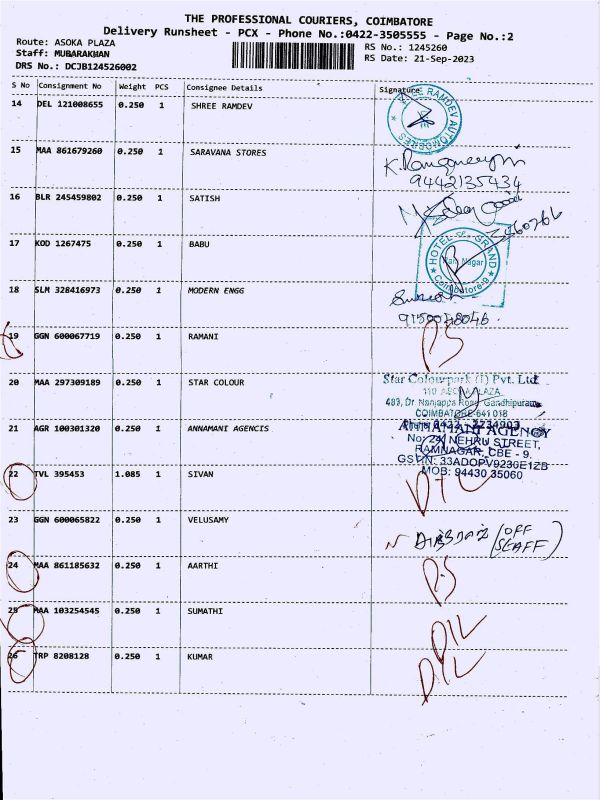 THE PROFESSIONAL COURIERS, COIMBATORE
Delivery Runsheet - PCX - Phone No.:0422-3505555 - Page No.:2
Route: ASOKA PLAZA
RS No.: 1245260
Staff: MUBARAKHAN
RS Date: 21-Sep-2023
DRS No.: DCJB124526002
S No Consignment No Weight PCS Consignee Details Signature
14 DEL 121008655 0.250 1 SHREE RAMDEV
SHREE RAMDEV AUTOMOBILES
15 MAA 861679260 0.250 1 SARAVANA STORES
9442135434
16 BLR 245459802 0.250 1 SATISH
17 KOD 1267475 0.250 1 BABU
HOTEL GRAND
Ram Nagar
Coimbatore-9
18 SLM 328416973 0.250 1 MODERN ENGG
9150048046
19 GGN 600067719 0.250 1 RAMANI
20 MAA 297309189 0.250 1 STAR COLOUR
Star Colourpark (I) Pvt. Ltd
110 ASOKA PLAZA
483, Dr. Nanjappa Road Gandhipuram
COIMBATORE-641 018
21 AGR 100301320 0.250 1 ANNAMANI AGENCIS
ANNAMANI AGENCY
No: 24, NEHRU STREET,
RAMNAGAR, CBE - 9.
GSTIN: 33ADOPV9236E1ZB
MOB: 94430 35060
22 TVL 395453 1.085 1 SIVAN
DTC
23 GGN 600065822 0.250 1 VELUSAMY
(OFF STAFF)
24 MAA 861185632 0.250 1 AARTHI
25 MAA 103254545 0.250 1 SUMATHI
D/L
26 TRP 8208128 0.250 1 KUMAR
D/L